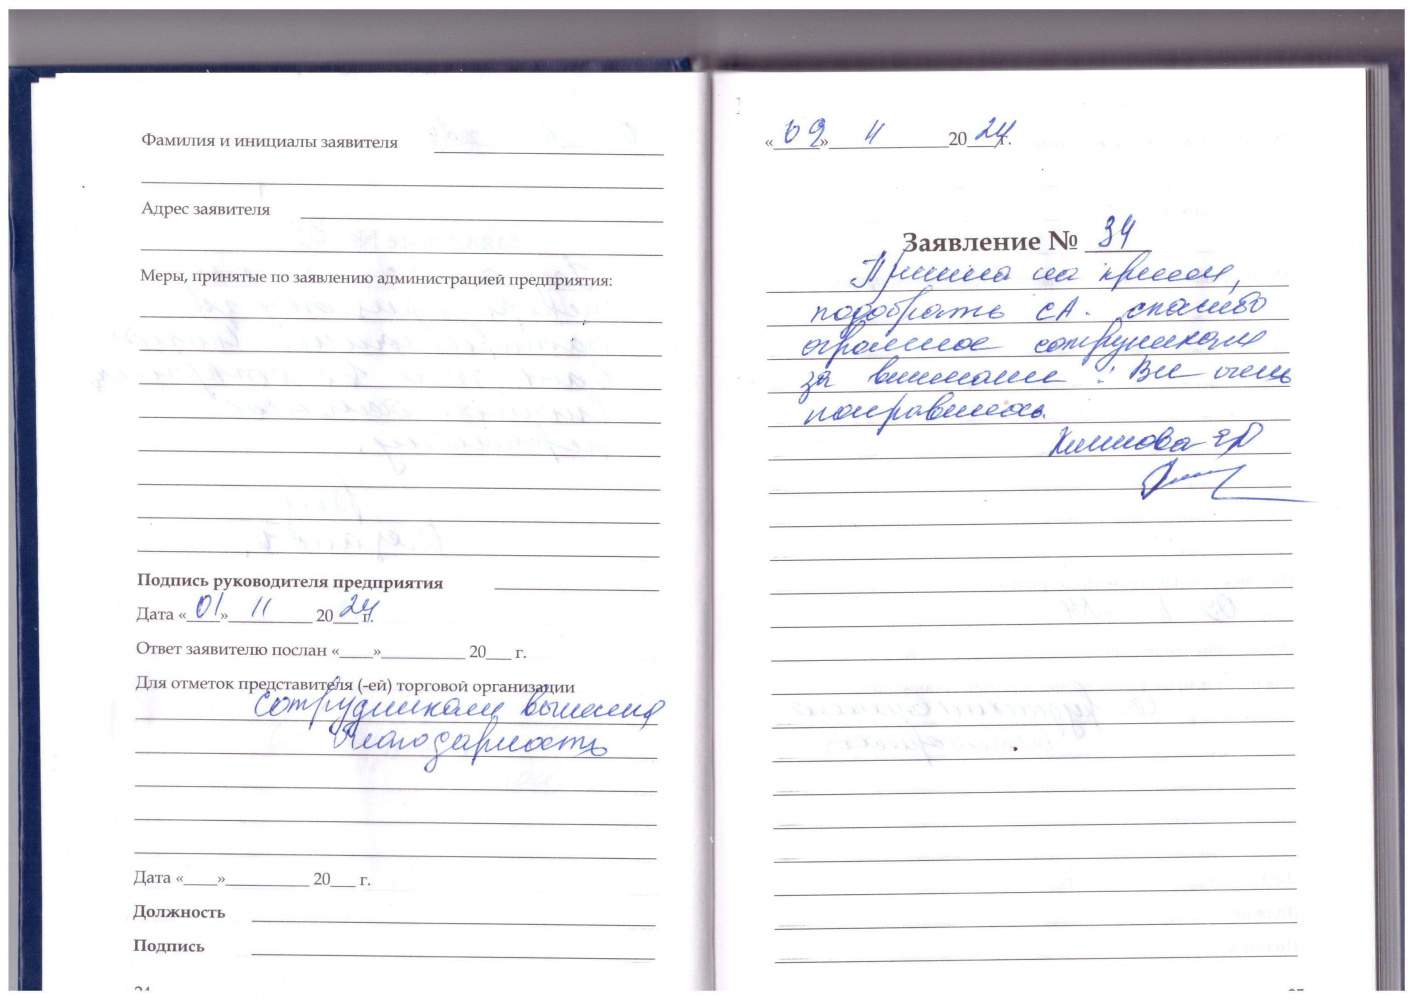 Фамилия и инициалы заявителя
Адрес заявителя
Меры, принятые по заявлению администрацией предприятия:
Подпись руководителя предприятия
Дата «01» 11 2024 г.
Ответ заявителю послан «____»__________ 20___ г.
Для отметок представителя (-ей) торговой организации
Сотрудникам
благодарность
Дата «____»__________ 20___ г.
Должность
Подпись
«09» 11 2024 г.
Заявление № 34
Пришла на прием,
подобрать СА. спасибо
огромное сотрудникам
за внимание! Все очень
понравилось.